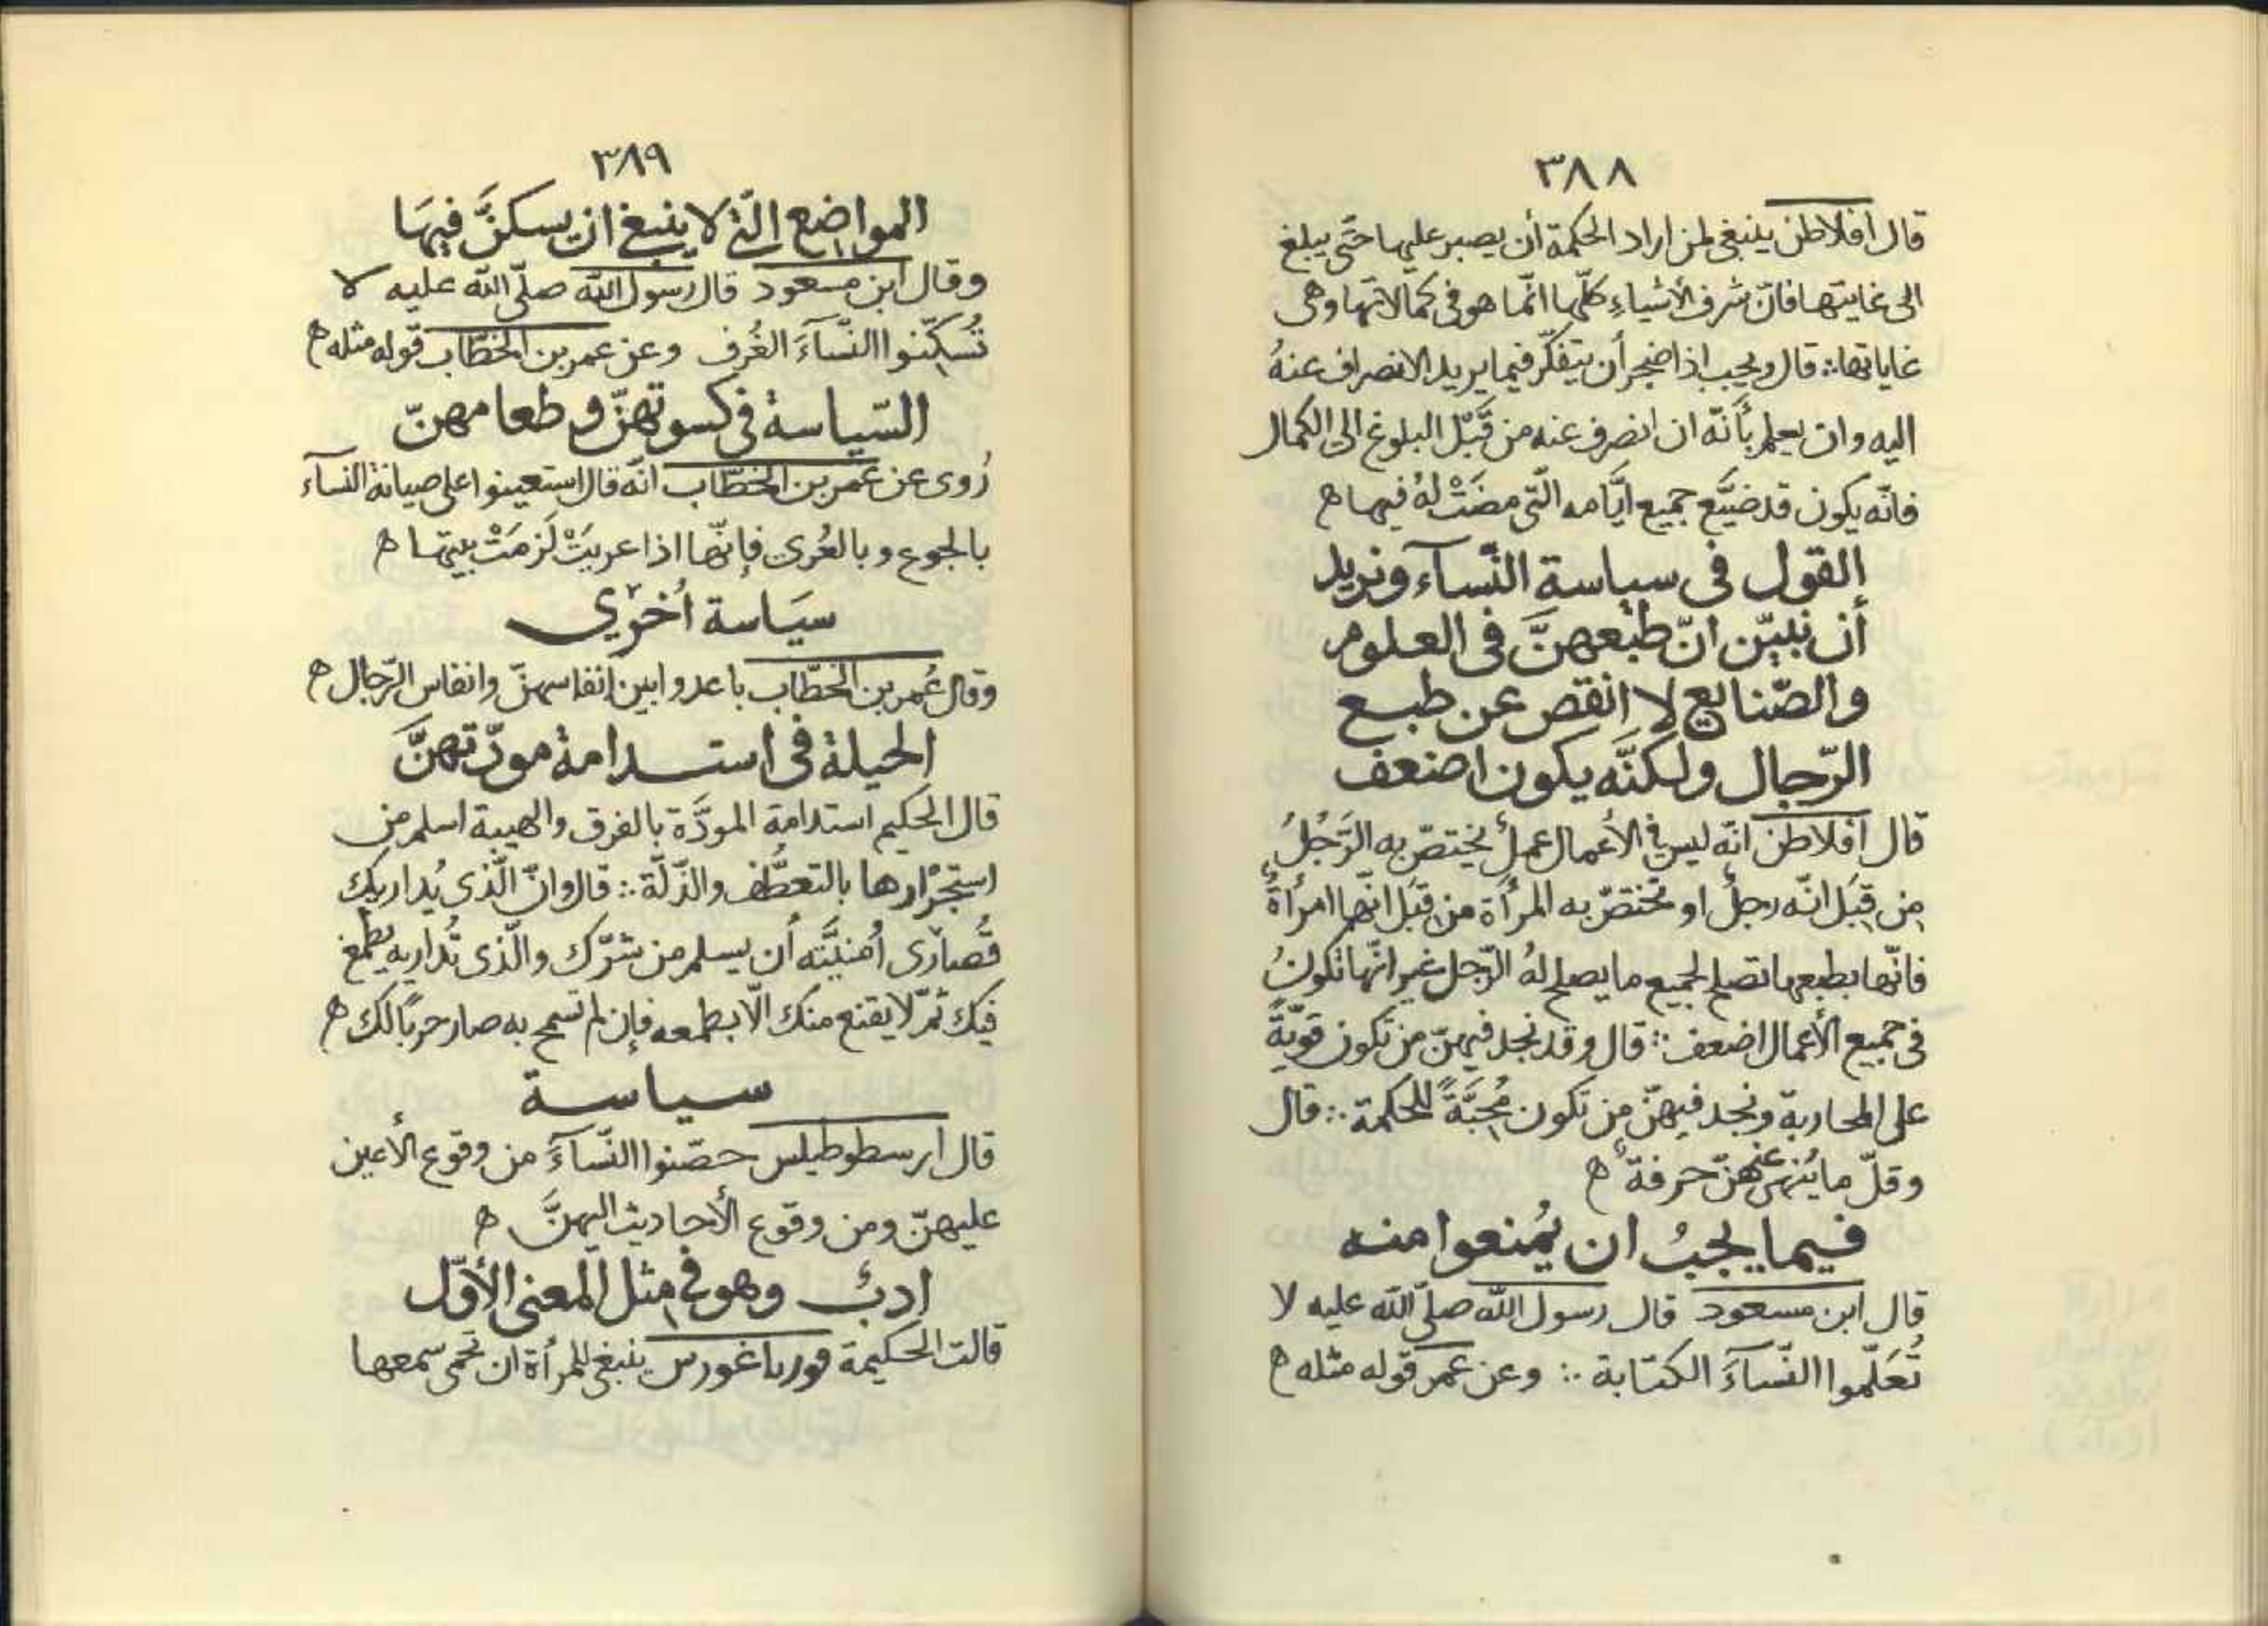 ٣٨٨
قال افلاطن ينبغى لمن اراد الحكمة أن يصبر عليها حتّى يبلغ
الى غايتها فانّ شرف الأشياءِ كلّها انّما هو فى كمالاتها وهى
غاياتها ؞ قال ويجب اذا ضجر أن يتفكّر فيما يريد الانصراف عنهُ
اليه وان يعلم بأَنّه ان انصرف عنه من قَبْل البلوغ الى الكمال
فانّه يكون قد ضيَّع جميع ايَّامه الّتى مضَتْ لهُ فيها ه
القول فى سياسة النّسآء ونريد
أن نبيّن انّ طبْعهنَّ فى العلوم
والصّنايع لا انقص عن طبع
الرّجال ولكنَّه يكون اضعف
قال افلاطن انّه ليس فى الأعمال عملٌ يختصّ به الرَّجُلُ
من قِبَل انّه رجلٌ او تختصّ به المرأَة من قِبَل انّها امرأةٌ
فانّها بطبعها تصلح لجميع ما يصلح لهُ الرّجل غير انّها تكونُ
فى جميع الأعمال اضعف ؞ قال وقد نجد فيهنّ من تكون قويّةً
على المحاربة ونجد فيهنّ من تكون مُحِبَّةً للحكمة ؞ قال
وقلّ ما عنهنّ حرفةٌ ه
فيما يجبُ ان يُمنعوا منه
قال ابن مسعود قال رسول اللّه صلّى اللّه عليه لا
تُعَلّموا النّسآءَ الكتابة ؞ وعن عمر قوله مثله ه
٣٨٩
المواضع الّتى لا ينبغى ان يسكنَّ فيهَا
وقال ابن مسعود قال رسول اللّه صلّى اللّه عليه لا
تُسَكِّنوا النّسآءَ الغُرف وعن عمر بن الخطّاب قوله مثله ه
السّياسة فى كسوتهنّ و طعامهنّ
رُوى عن عمر بن الخطّاب انّه قال استعينوا على صيانة النسآء
بالجوع و بالعُرى فإنّها اذا عريتْ لَزمَتْ بيتها ه
سيَاسة أُخرى
وقال عُمر بن الخطّاب باعدوا بين انفاسهنّ وانفاس الرّجال ه
الحيلة فى استدامة مودّتهنَّ
قال الحكيم استدامة المودَّة بالفرق والهيبة اسلم من
استجْرارها بالتعطُّف والذّلّة ؞ قال وانّ الّذى يُداريك
قُصارَى أُمنيَّته أن يسلم من شرّك والّذى تُداريه يطمع
فيك ثمّ لا يقنع منك الّا بطمعه فإن لم تسمح به صار حربًا لك ه
سياسة
قال ارسطوطيلس حصّنوا النّسآءَ من وقوع الأعين
عليهنّ ومن وقوع الأحاديث اليهنَّ ه
ادبٌ وهو فى مثل المعنى الأوّل
قالت الحكيمة فورباغورس ينبغى للمرأة ان تحمى سمعها